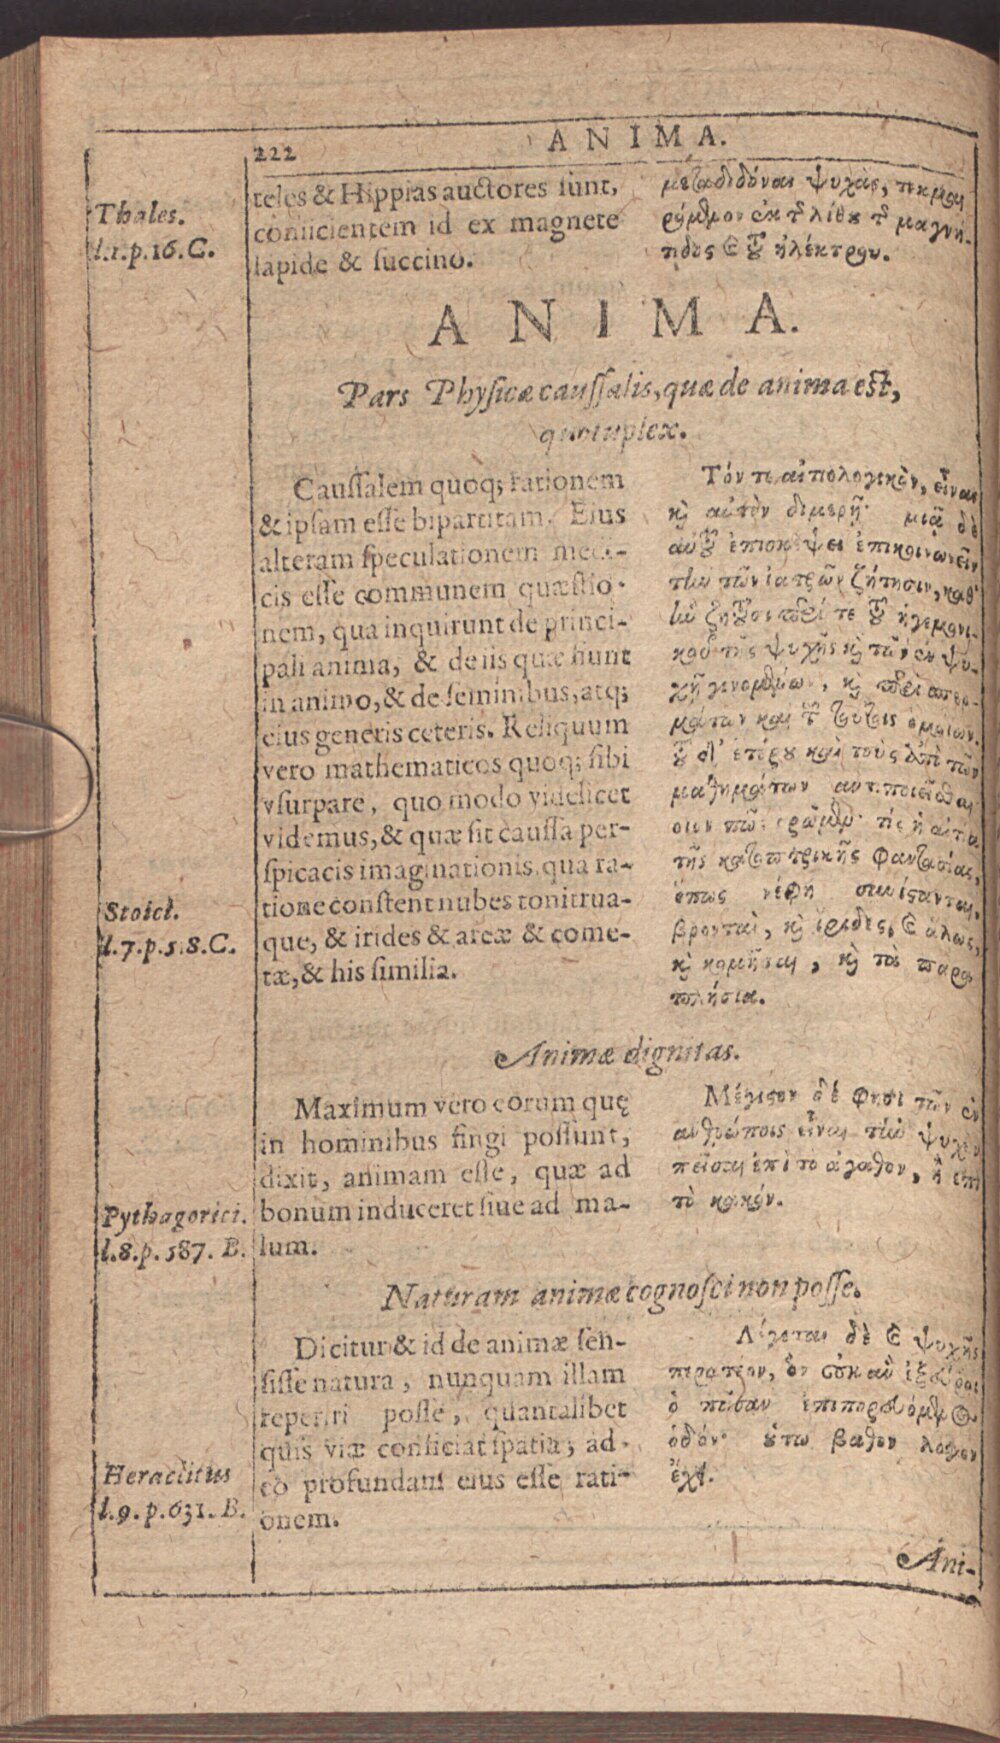 222
ANIMA.
Thales.
l.1.p.16.C.
teles & Hippias auctores sunt,
coniicientem id ex magnete
lapide & succino.
μεταδιδόναι ψυχὰς, τεκμαι
ρόμενον ἐκ τῆς λίθου τῆς μαγνή-
τιδος καὶ τοῦ ἠλέκτρου.
ANIMA.
Pars Physicæ caussalis, quæ de anima est,
quotuplex.
Caussalem quoq; rationem
& ipsam esse bipartitam. Eius
alteram speculationem medi-
cis esse communem quæstio-
nem, qua inquirunt de princi-
pali anima, & de iis quæ fiunt
in animo, & de seminibus, atq;
eius generis ceteris. Reliquum
vero mathematicos quoq; sibi
vsurpare, quo modo videlicet
videmus, & quæ sit caussa per-
spicacis imaginationis, qua ra-
tione constent nubes tonitrua-
que, & irides & areæ & come-
tæ, & his similia.
Τόν τε αἰτιολογικὸν, εἶναι
καὶ αὐτὸν διμερῆ· μιᾷ δὲ
αὐτοῦ ἐπισκέψει ἐπικοινωνεῖν
τὴν τῶν ἰατρῶν ζήτησιν, καθ'
ἣν ζητοῦσι περί τε τοῦ ἡγεμονι-
κοῦ τῆς ψυχῆς καὶ τῶν ἐν ψυ-
χῇ γινομένων, καὶ περὶ σπερ-
μάτων καὶ τῶν τούτοις ὁμοίων.
τοῦ δ' ἑτέρου καὶ τοὺς ἀπὸ τῶν
μαθημάτων ἀντιποιεῖσθαι·
οἷον πῶς ὁρῶμεν· τίς ἡ αἰτία
τῆς κατοπτρικῆς φαντασίας,
ὅπως νέφη συνίστανται,
βρονταὶ, καὶ ἴριδες, καὶ ἅλως,
καὶ κομῆται, καὶ τὰ παρα
πλήσια.
Stoici.
l.7.p.518.C.
Animæ dignitas.
Maximum vero eorum quę
in hominibus fingi possunt,
dixit, animam esse, quæ ad
bonum induceret siue ad ma-
lum.
Μέγιστον δέ φησι τῶν ἐν
ἀνθρώποις εἶναι τὴν ψυχὴν
πεῖσαι ἐπὶ τὸ ἀγαθὸν, ἢ ἐπὶ
τὸ κακόν.
Pythagorici.
l.8.p.587. B.
Naturam animæ cognosci non posse.
Dicitur & id de animæ sen-
sisse natura, nunquam illam
reperiri posse, quantalibet
quis viæ conficiat spatia; ad-
eo profundam eius esse rati-
onem.
Λέγεται δὲ καὶ ψυχῆς
πειρατέον, ὃν οὐκ ἂν ἐξεύροι
ὁ πᾶσαν ἐπιπορευόμενος
ὁδόν· οὕτω βαθὺν λόγον
ἔχει.
Heraclitus
l.9.p.631. B.
Ani-